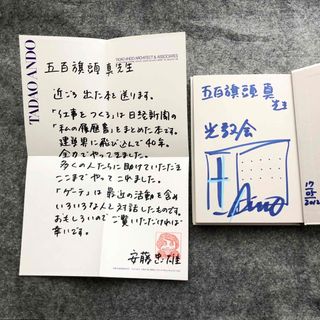 TADAO ANDO
TADAO ANDO ARCHITECT & ASSOCIATES
五百旗頭 真 先生
近ごろ 出た本を 送ります。
「仕事をつくる」は 日経新聞の
「私の履歴書」を まとめた本です。
建築界に 飛び込んで 40年。
全力で やってきました。
多くの人たちに 助けていただき
ここまで やって これました。
「ゲーテ」は 最近の活動を 含め
いろいろな人と 対話したものです。
おもしろいので ご覧いただければ
幸いです。
安藤忠雄
五百旗頭 真
先生
光の教会
Ando
2012